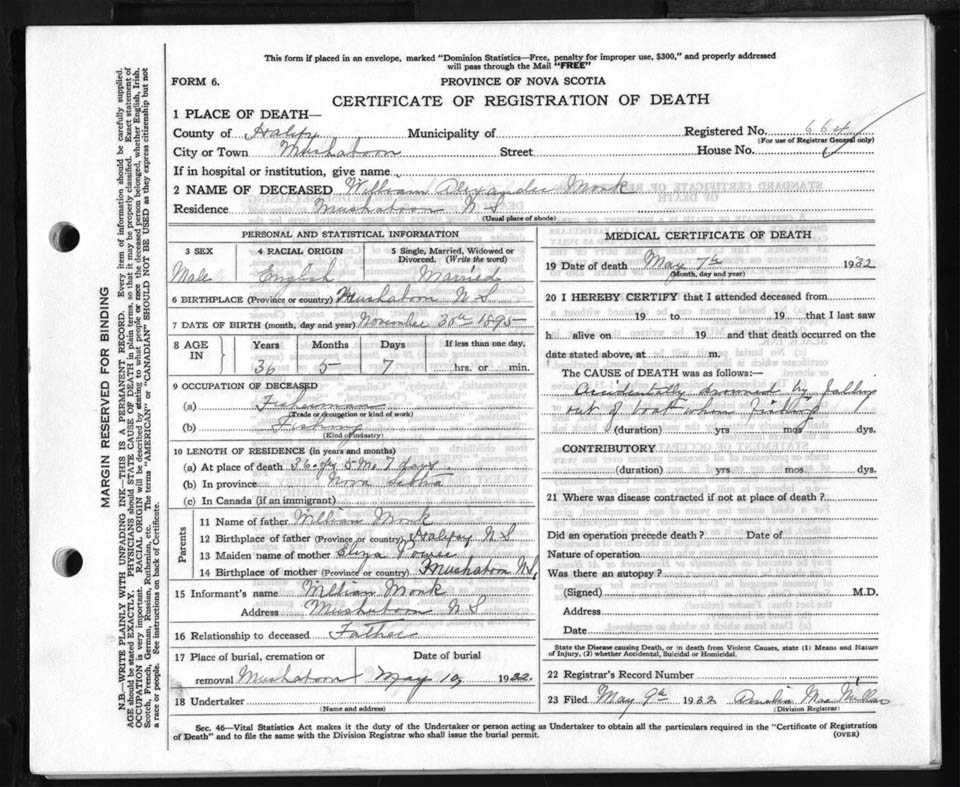 This form if placed in an envelope, marked "Dominion Statistics—Free, penalty for improper use, $300," and properly addressed
will pass through the Mail "FREE"
FORM 6.
PROVINCE OF NOVA SCOTIA
CERTIFICATE OF REGISTRATION OF DEATH
1 PLACE OF DEATH—
County of Halfx Municipality of Registered No. 664
(For use of Registrar General only)
City or Town Mushaboon Street House No.
If in hospital or institution, give name
2 NAME OF DECEASED William Alexander Monk
Residence Mushaboon N S
(Usual place of abode)
PERSONAL AND STATISTICAL INFORMATION
3 SEX 4 RACIAL ORIGIN 5 Single, Married, Widowed or Divorced. (Write the word)
Male English Married
6 BIRTHPLACE (Province or country) Mushaboon N S
7 DATE OF BIRTH (month, day and year) November 30th 1895
8 AGE IN Years Months Days If less than one day.
36 5 7 hrs. or min.
9 OCCUPATION OF DECEASED
(a) Fisherman
(Trade or occupation or kind of work)
(b) Fishing
(Kind of industry)
10 LENGTH OF RESIDENCE (in years and months)
(a) At place of death 36 yrs 5 Mo 7 days
(b) In province Nova Scotia
(c) In Canada (if an immigrant)
Parents
11 Name of father William Monk
12 Birthplace of father (Province or country) Halifax N S
13 Maiden name of mother Eliza Power
14 Birthplace of mother (Province or country) Mushaboon N S
15 Informant's name William Monk
Address Mushaboon N S
16 Relationship to deceased Father
17 Place of burial, cremation or removal Date of burial
Mushaboon May 10, 1932
18 Undertaker
(Name and address)
MEDICAL CERTIFICATE OF DEATH
19 Date of death May 7th 1932
(Month, day and year)
20 I HEREBY CERTIFY that I attended deceased from
19 to 19 that I last saw
h alive on 19 and that death occurred on the
date stated above, at m.
The CAUSE OF DEATH was as follows:—
Accidentally drowned by falling
out of boat when fishing
(duration) yrs mos dys.
CONTRIBUTORY
(duration) yrs mos dys.
21 Where was disease contracted if not at place of death?
Did an operation precede death? Date of
Nature of operation
Was there an autopsy?
(Signed) M.D.
Address
Date
State the Disease causing Death, or in death from Violent Causes, state (1) Means and Nature
of Injury, (2) whether Accidental, Suicidal or Homicidal.
22 Registrar's Record Number
23 Filed May 9th 1932 Amelia
(Division Registrar)
Sec. 46—Vital Statistics Act makes it the duty of the Undertaker or person acting as Undertaker to obtain all the particulars required in the "Certificate of Registration
of Death" and to file the same with the Division Registrar who shall issue the burial permit. (OVER)
MARGIN RESERVED FOR BINDING
N.B.—WRITE PLAINLY WITH UNFADING INK—THIS IS A PERMANENT RECORD. Every item of information should be carefully supplied.
AGE should be stated EXACTLY. PHYSICIANS should STATE CAUSE OF DEATH in plain terms, so that it may be properly classified. Exact statement of
OCCUPATION is very important. RACIAL ORIGIN will be described by stating to what people or race the deceased person belonged, whether English, Irish,
Scotch, French, German, Russian, Ruthenian, etc. The terms "AMERICAN" or "CANADIAN" SHOULD NOT BE USED as they express citizenship but not
a race or people. See instructions on back of Certificate.